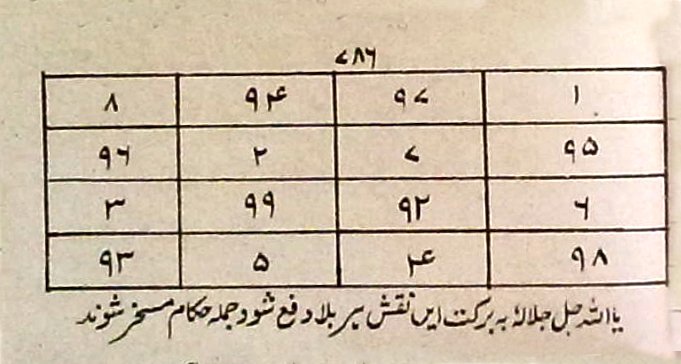 ۷۸۶
۱ ۹۷ ۹۴ ۸
۹۵ ۷ ۲ ۹۶
۶ ۹۲ ۹۹ ۳
۹۸ ۴ ۵ ۹۳
یا اللہ جل جلالہٗ بہ برکت ایں نقش ہر بلا دفع شود جملہ حکام مسخر شوند